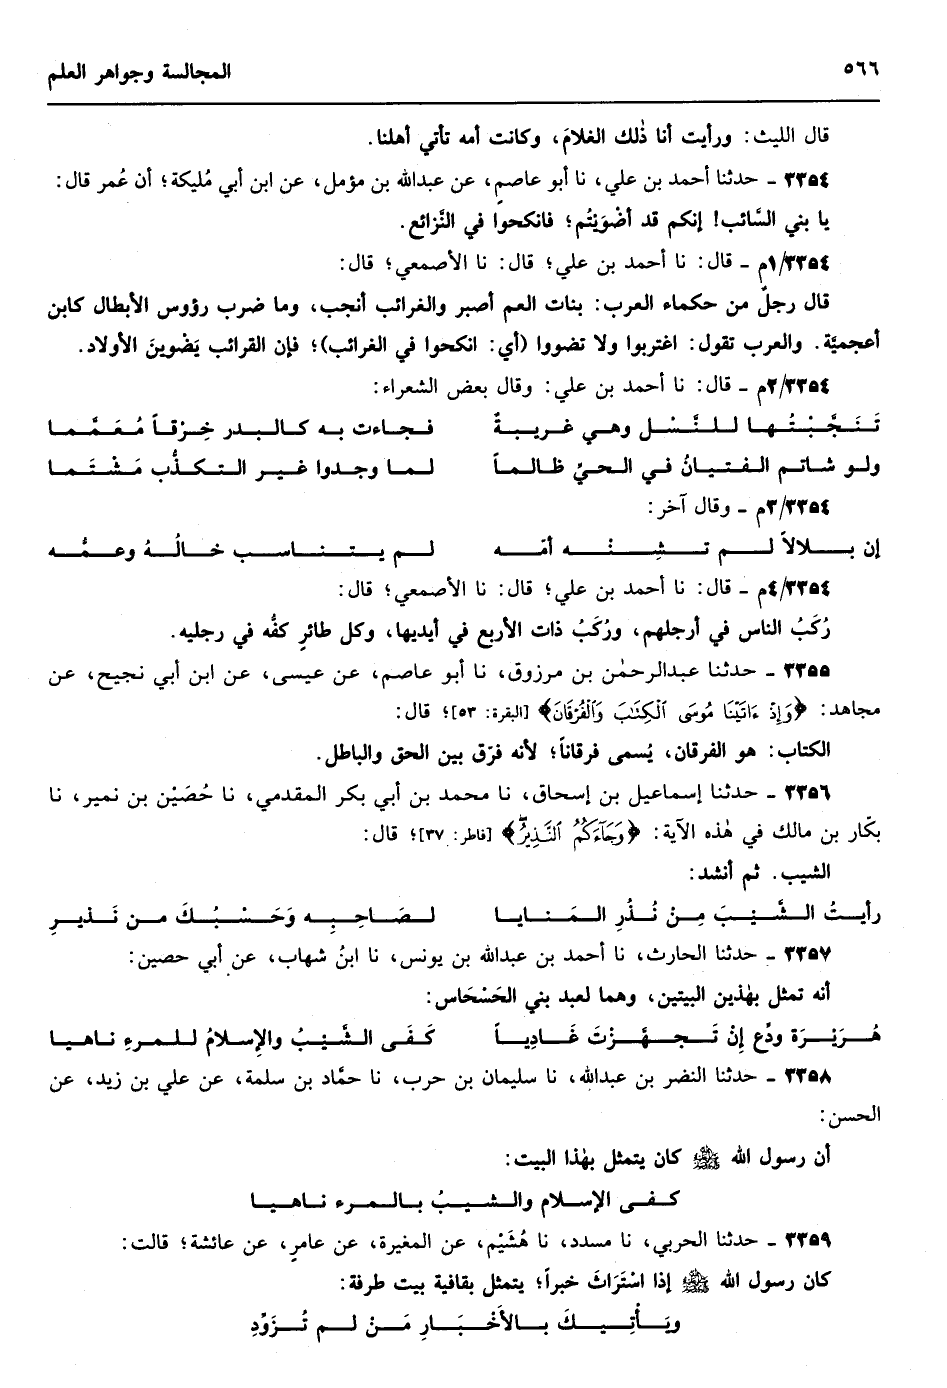 ٥٦٦ المجالسة وجواهر العلم
قال الليث: ورأيت أنا ذٰلك الغلامَ، وكانت أمه تأتي أهلنا.
٣٣٥٤ - حدثنا أحمد بن علي، نا أبو عاصم، عن عبدالله بن مؤمل، عن ابن أبي مُليكة؛ أن عُمر قال:
يا بني السَّائب! إنكم قد أضْوَيْتُم؛ فانكحوا في النَّزائع.
١/٣٣٥٤م - قال: نا أحمد بن علي؛ قال: نا الأصمعي؛ قال:
قال رجلٌ من حكماء العرب: بنات العم أصبر والغرائب أنجب، وما ضرب رؤوس الأبطال كابن
أعجميَّة. والعرب تقول: اغتربوا ولا تضووا (أي: انكحوا في الغرائب)؛ فإن القرائب يَضْوينَ الأولاد.
٢/٣٣٥٤م - قال: نا أحمد بن علي: وقال بعض الشعراء:
تَنَجَّبْتُها للنَّسْل وهي غريبةٌ فجاءت به كالبدر خِرْقاً مُعَمَّما
ولو شاتم الفتيانُ في الحيِّ ظالماً لما وجدوا غير التكذُّب مَشْتَما
٣/٣٣٥٤م - وقال آخر:
إن بلالاً لم تشِنْه أمّه لم يتناسب خالُهُ وعمُّه
٤/٣٣٥٤م - قال: نا أحمد بن علي؛ قال: نا الأصمعي؛ قال:
رُكَبُ الناس في أرجلهم، ورُكَبُ ذات الأربع في أيديها، وكل طائرٍ كفُّه في رجليه.
٣٣٥٥ - حدثنا عبدالرحمٰن بن مرزوق، نا أبو عاصم، عن عيسى، عن ابن أبي نجيح، عن
مجاهد: ﴿وَإِذْ ءَاتَيْنَا مُوسَى ٱلْكِتَٰبَ وَٱلْفُرْقَانَ﴾ [البقرة: ٥٣]؛ قال:
الكتاب: هو الفرقان، يُسمى فرقاناً؛ لأنه فرّق بين الحق والباطل.
٣٣٥٦ - حدثنا إسماعيل بن إسحاق، نا محمد بن أبي بكر المقدمي، نا حُصَيْن بن نمير، نا
بكّار بن مالك في هٰذه الآية: ﴿وَجَآءَكُمُ ٱلنَّذِيرُ﴾ [فاطر: ٣٧]؛ قال:
الشيب. ثم أنشد:
رأيتُ الشَّيْبَ مِنْ نُذُرِ المَنايا لصَاحِبِه وَحَسْبُكَ من نَذيرِ
٣٣٥٧ - حدثنا الحارث، نا أحمد بن عبدالله بن يونس، نا ابنُ شهاب، عن أبي حصين:
أنه تمثل بهٰذين البيتين، وهما لعبد بني الحَسْحَاس:
هُرَيْرَة ودِّع إنْ تَجهَّزْتَ غَادِياً كَفَى الشَّيْبُ والإسلامُ للمرءِ ناهيا
٣٣٥٨ - حدثنا النضر بن عبدالله، نا سليمان بن حرب، نا حمَّاد بن سلمة، عن علي بن زيد، عن
الحسن:
أن رسول الله ﷺ كان يتمثل بهٰذا البيت:
كفى الإسلام والشيبُ بالمرء ناهيا
٣٣٥٩ - حدثنا الحربي، نا مسدد، نا هُشَيْم، عن المغيرة، عن عامرٍ، عن عائشة؛ قالت:
كان رسول الله ﷺ إذا اسْتَرَاثَ خبراً؛ يتمثل بقافية بيت طرفة:
ويَأْتِيكَ بالأَخْبَارِ مَنْ لم تُزَوِّدِ